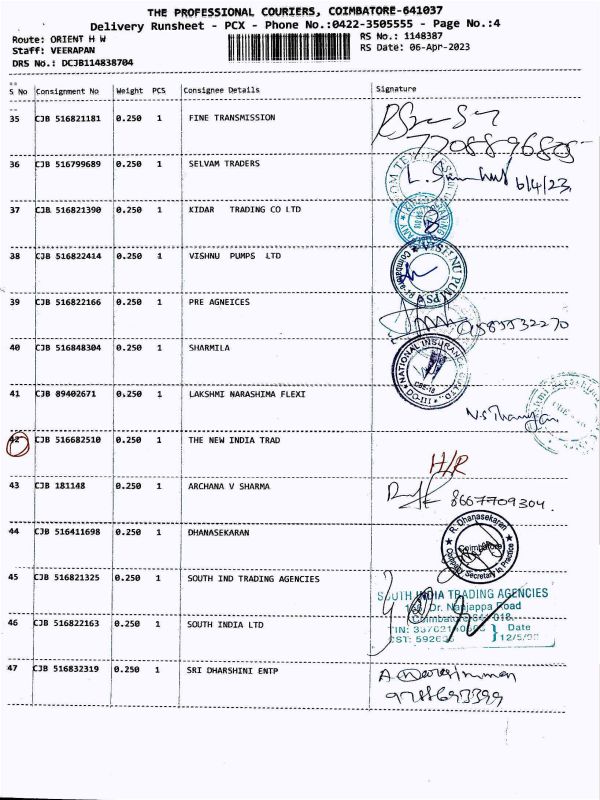 THE PROFESSIONAL COURIERS, COIMBATORE-641037
Delivery Runsheet - PCX - Phone No.:0422-3505555 - Page No.:4
Route: ORIENT H W RS No.: 1148387
Staff: VEERAPAN RS Date: 06-Apr-2023
DRS No.: DCJB114838704
S No Consignment No Weight PCS Consignee Details Signature
35 CJB 516821181 0.250 1 FINE TRANSMISSION
7708896805
36 CJB 516799689 0.250 1 SELVAM TRADERS
6/4/23
37 CJB 516821390 0.250 1 KIDAR TRADING CO LTD
38 CJB 516822414 0.250 1 VISHNU PUMPS LTD
VISHNU PUMPS
39 CJB 516822166 0.250 1 PRE AGNEICES
40 CJB 516848304 0.250 1 SHARMILA
NATIONAL INSURANCE CO. LTD.
41 CJB 89402671 0.250 1 LAKSHMI NARASHIMA FLEXI
42 CJB 516682510 0.250 1 THE NEW INDIA TRAD
H/R
43 CJB 181148 0.250 1 ARCHANA V SHARMA
8667709304.
44 CJB 516411698 0.250 1 DHANASEKARAN
R. Dhanasekaran
Coimbatore
Company Secretary In Practice
45 CJB 516821325 0.250 1 SOUTH IND TRADING AGENCIES
SOUTH INDIA TRADING AGENCIES
Dr. Nanjappa Road
Coimbatore-641 018.
46 CJB 516822163 0.250 1 SOUTH INDIA LTD
Date
47 CJB 516832319 0.250 1 SRI DHARSHINI ENTP
9788693399